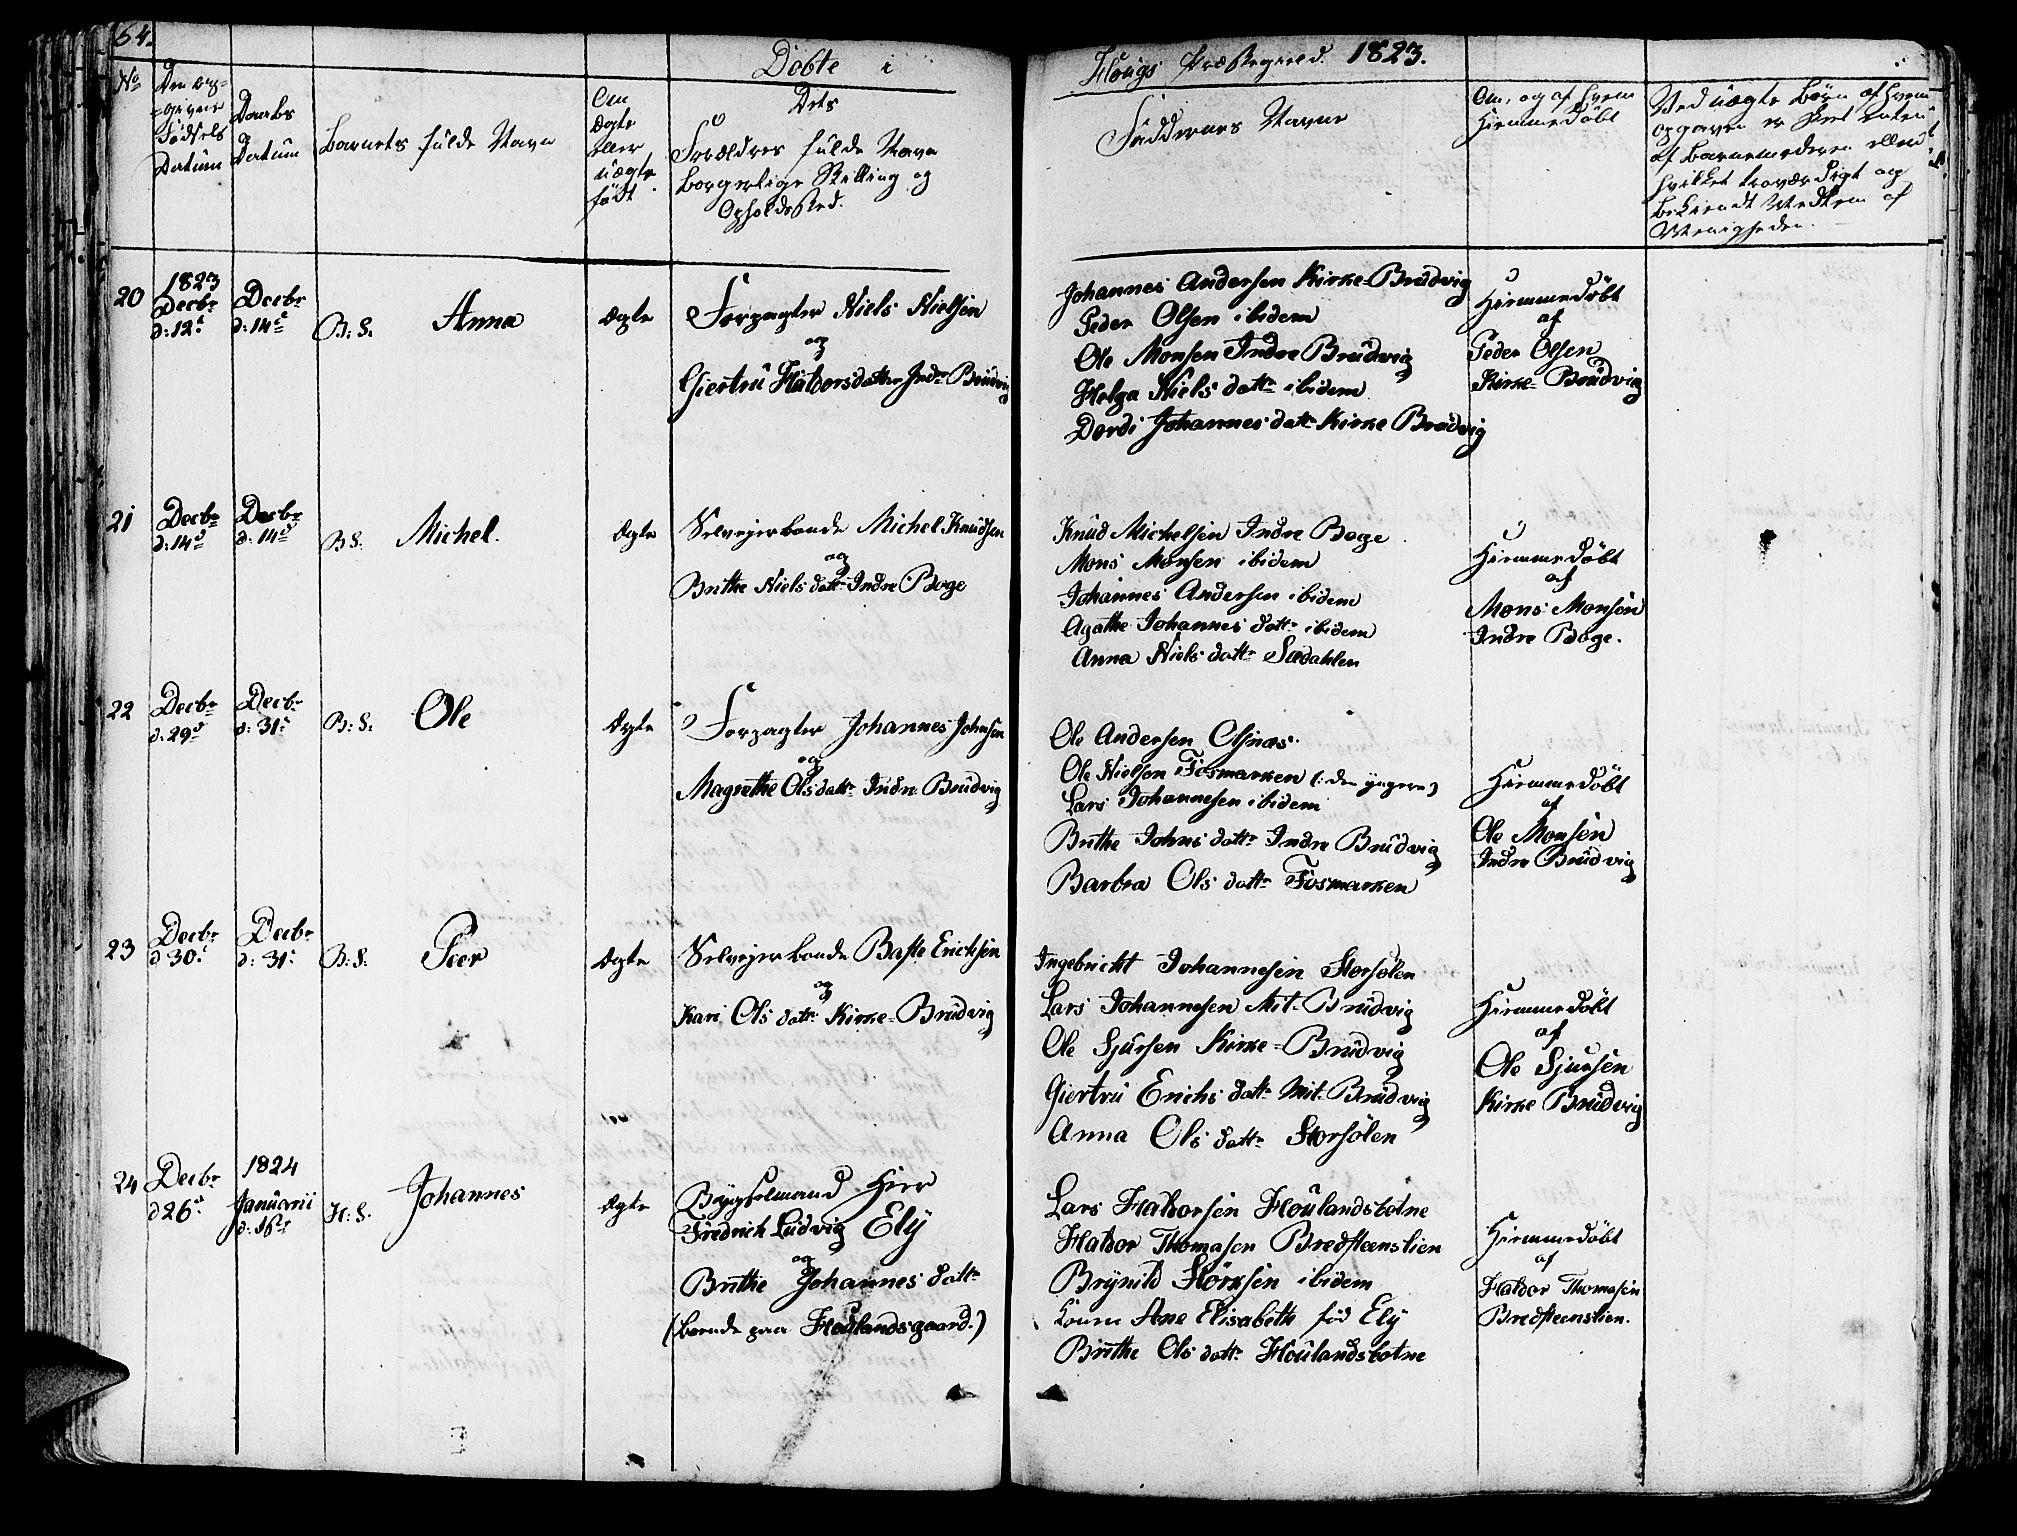 64.
Døbte i
Hougs Præstegield. 1823.
No
Den op-
-givne
Fødsels
Datum
Daabs
Datum
Barnets fulde Navn
Om
ægte
eller
uægte
født.
Dets
Forældres fulde Navn
borgerlige Stilling og
Opholdssted.
Faddernes Navne
Om, og af hvem
Hiemmedøbt
Ved uægte Børn af hvem
opgaven er skeet enten
af Barnemoderen eller
hvilket troværdigt og
bekiendt Vedkom af
Menigheden.
20
1823
Decbr
d: 12te
Decbr
d: 14de
B: S.
Anna
ægte
Forpagter Niels Nielsen
og
Giertru Haldorsdatter Indr Brudvig
Johannes Andersen Kirke-Brudvig
Peder Olsen ibidem
Ole Monsen Indre Brudvig
Helga Niels dattr ibidem
Dordi Johannes dattr Kirke Brudvig
Hiemmedøbt
af
Peder Olsen
Kirke-Brudvig
21
Decbr
d: 14d
Decbr
d: 14d
B S.
Michel.
ægte
Selvejerbonde Michel Knudsen
og
Brithe Niels dattr Indre Boge
Knud Michelsen Indre Boge
Mons Monsen ibidem
Johannes Andersen ibidem
Agathe Johannes dattr ibidem
Anna Niels dattr Sædahlen
Hiemmedøbt
af
Mons Monsen
Indre Boge.
22
Decbr
d: 29d
Decbr
d: 31te
B: S.
Ole
ægte
Forpagter Johannes Johnsen
og
Magrethe Olsdattr Indre Brudvig
Ole Andersen Olsnæs.
Ole Nielsen Fosmarken (: den yngere)
Lars Johannesen ibidem
Brithe Johns dattr Indre Brudvig
Barbra Ols dattr Fosmarken
Hiemmedøbt
af
Ole Monsen
Indre Brudvig
23
Decbr
d 30te
Decbr
d: 31te
B: S.
Peer
ægte
Selvejerbonde Baste Ericksen
og
Kari Ols dattr Kirke-Brudvig
Ingebricht Johannesen Storsølen
Lars Johannesen Mit-Brudvig
Ole Sjursen Kirke-Brudvig
Giertru Erichs dattr Mit-Brudvig
Anna Ols dattr Storsølen
Hiemmedøbt
af
Ole Sjursen
Kirke Brudvig
24
Decbr
d 26de
1824
Januarii
d: 16de
H: S.
Johannes
ægte
Bygselmand Herr
Fredrich Ludvig Ely
og
Brithe Johannes dattr
(boende paa Houlandsgaard.)
Lars Haldorsen Houlandsbotne
Haldor Thomasen Bredsteenslien
Brynild Størksen ibidem
Konen Ane Elisabeth fød Ely
Brithe Ols dattr Houlandsbotne
Hiemmedøbt
af
Haldor Thomasen
Bredsteenslien.